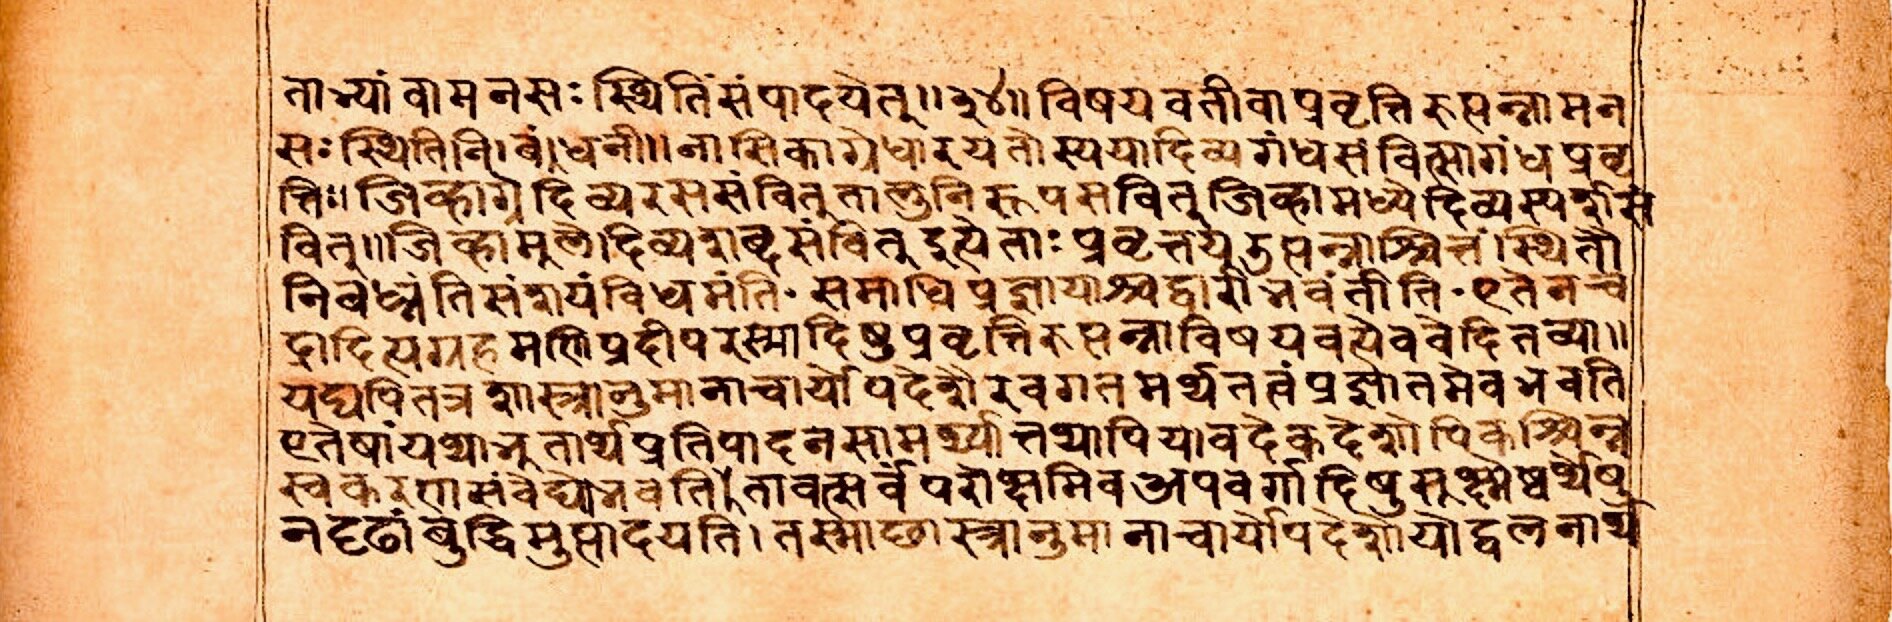 ताभ्यां वा मनसः स्थितिं संपादयेत् ॥३४॥ विषयवती वा प्रवृत्तिरुत्पन्ना मन
सः स्थितिनिबंधनी ॥ नासिकाग्रे धारयतोस्य या दिव्यगंधसंवित्सा गंधप्रवृ
त्तिः जिव्हाग्रे दिव्यरससंवित् तालुनि रूपसवित् जिव्हामध्ये दिव्यस्पर्शसं
वित् ॥ जिव्हामुले दिव्यशब्दसंवित् दुत्येताः प्रवृत्तय उत्पन्नाश्चित्तं स्थितौ
निबध्नंति संशयं विधमंति · समाधिप्रज्ञायाश्च द्वारीभवंतीति · एतेन चं
द्रादित्यग्रहमणिप्रदीपरस्मादिषु प्रवृत्तिरुत्पन्ना विषयवत्येव वेदितव्या ॥
यद्यपि तत्र शास्त्रानुमानाचार्योपदेशैरवगतमर्थतत्वं प्रज्ञातमेव भवति
एतेषां यथाभुतार्थप्रतिपादनसामर्थ्यात्तथापि यावदेकदेशोपि कश्चिन्न
स्वकरणसंवेद्यो भवति । तावत्सर्वं परोक्षमिव अपवर्गादिषु सुक्ष्मेष्वर्थेषु
न दृढां बुद्धिमुत्पादयति । तस्माछास्त्रानुमानाचार्योपदेशोयोद्वलनार्थ